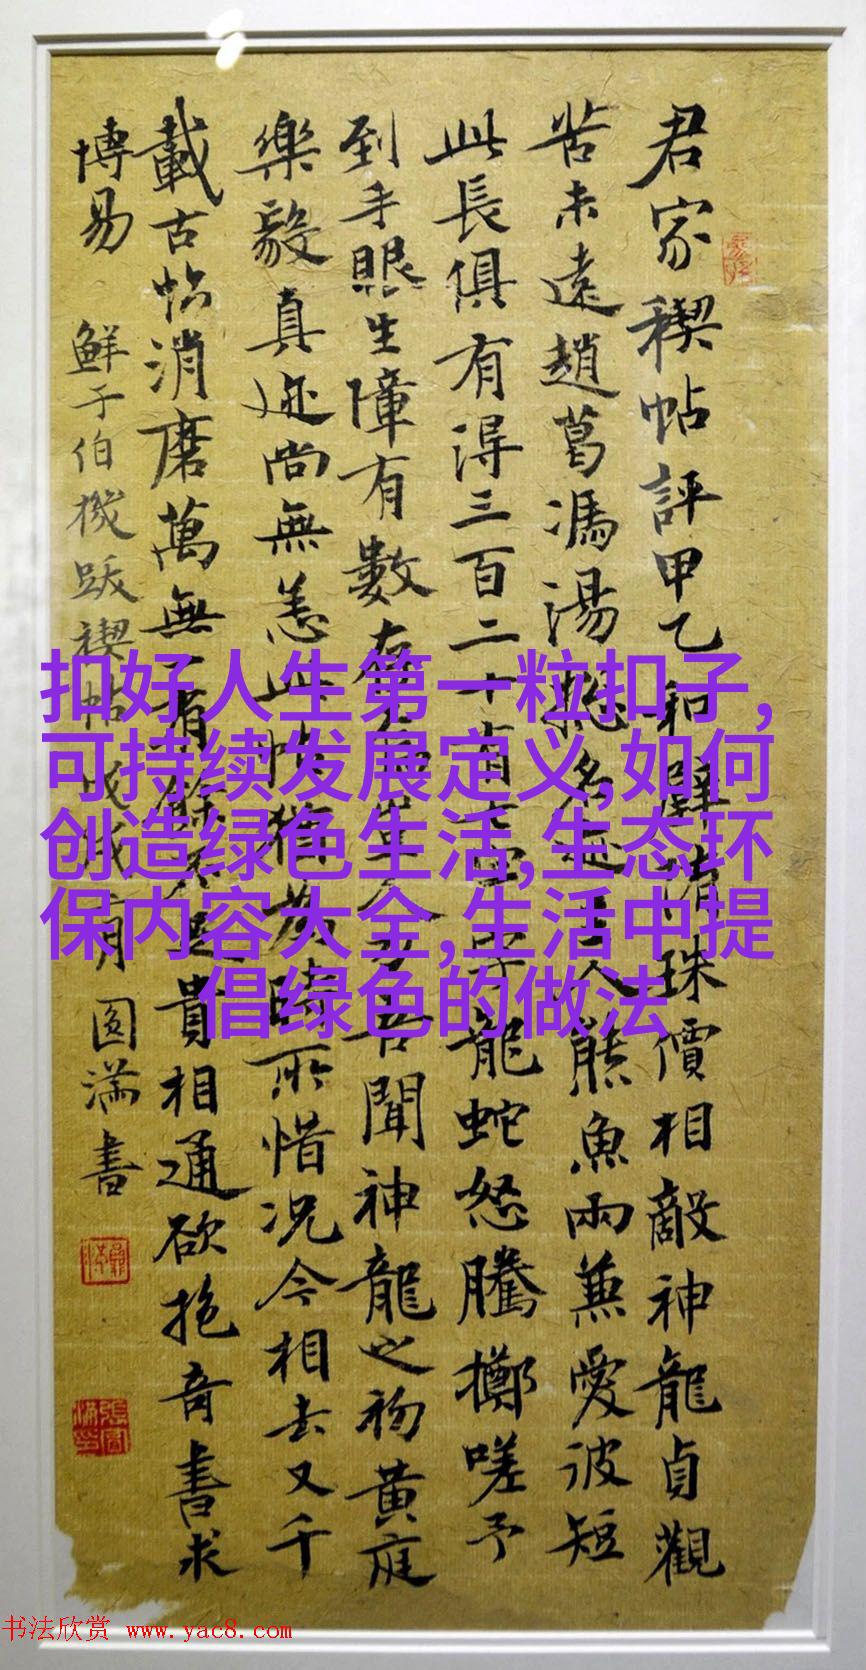 君家稧帖評甲乙和璧隋珠價相敵神龍貞觀
苦未遠趙葛馮湯揔名迹主人熊魚兩兼愛彼短
此長俱有得三百二十有字龍蛇怒騰擲嗟予
到手眼生障有數存焉吾聞神龍之初黄庭
樂毅真迹尚無恙此帖猶為時所惜况今相去又千
載古帖消磨萬無有餘不是貴相通欲抱奇書求
博易
鮮于伯機跋禊帖
圆满書
扣好人生第一粒扣子,
可持续发展定义,如何
创造绿色生活,生态环
保内容大全,生活中提
倡绿色的做法
书法欣赏 www.yac8.com